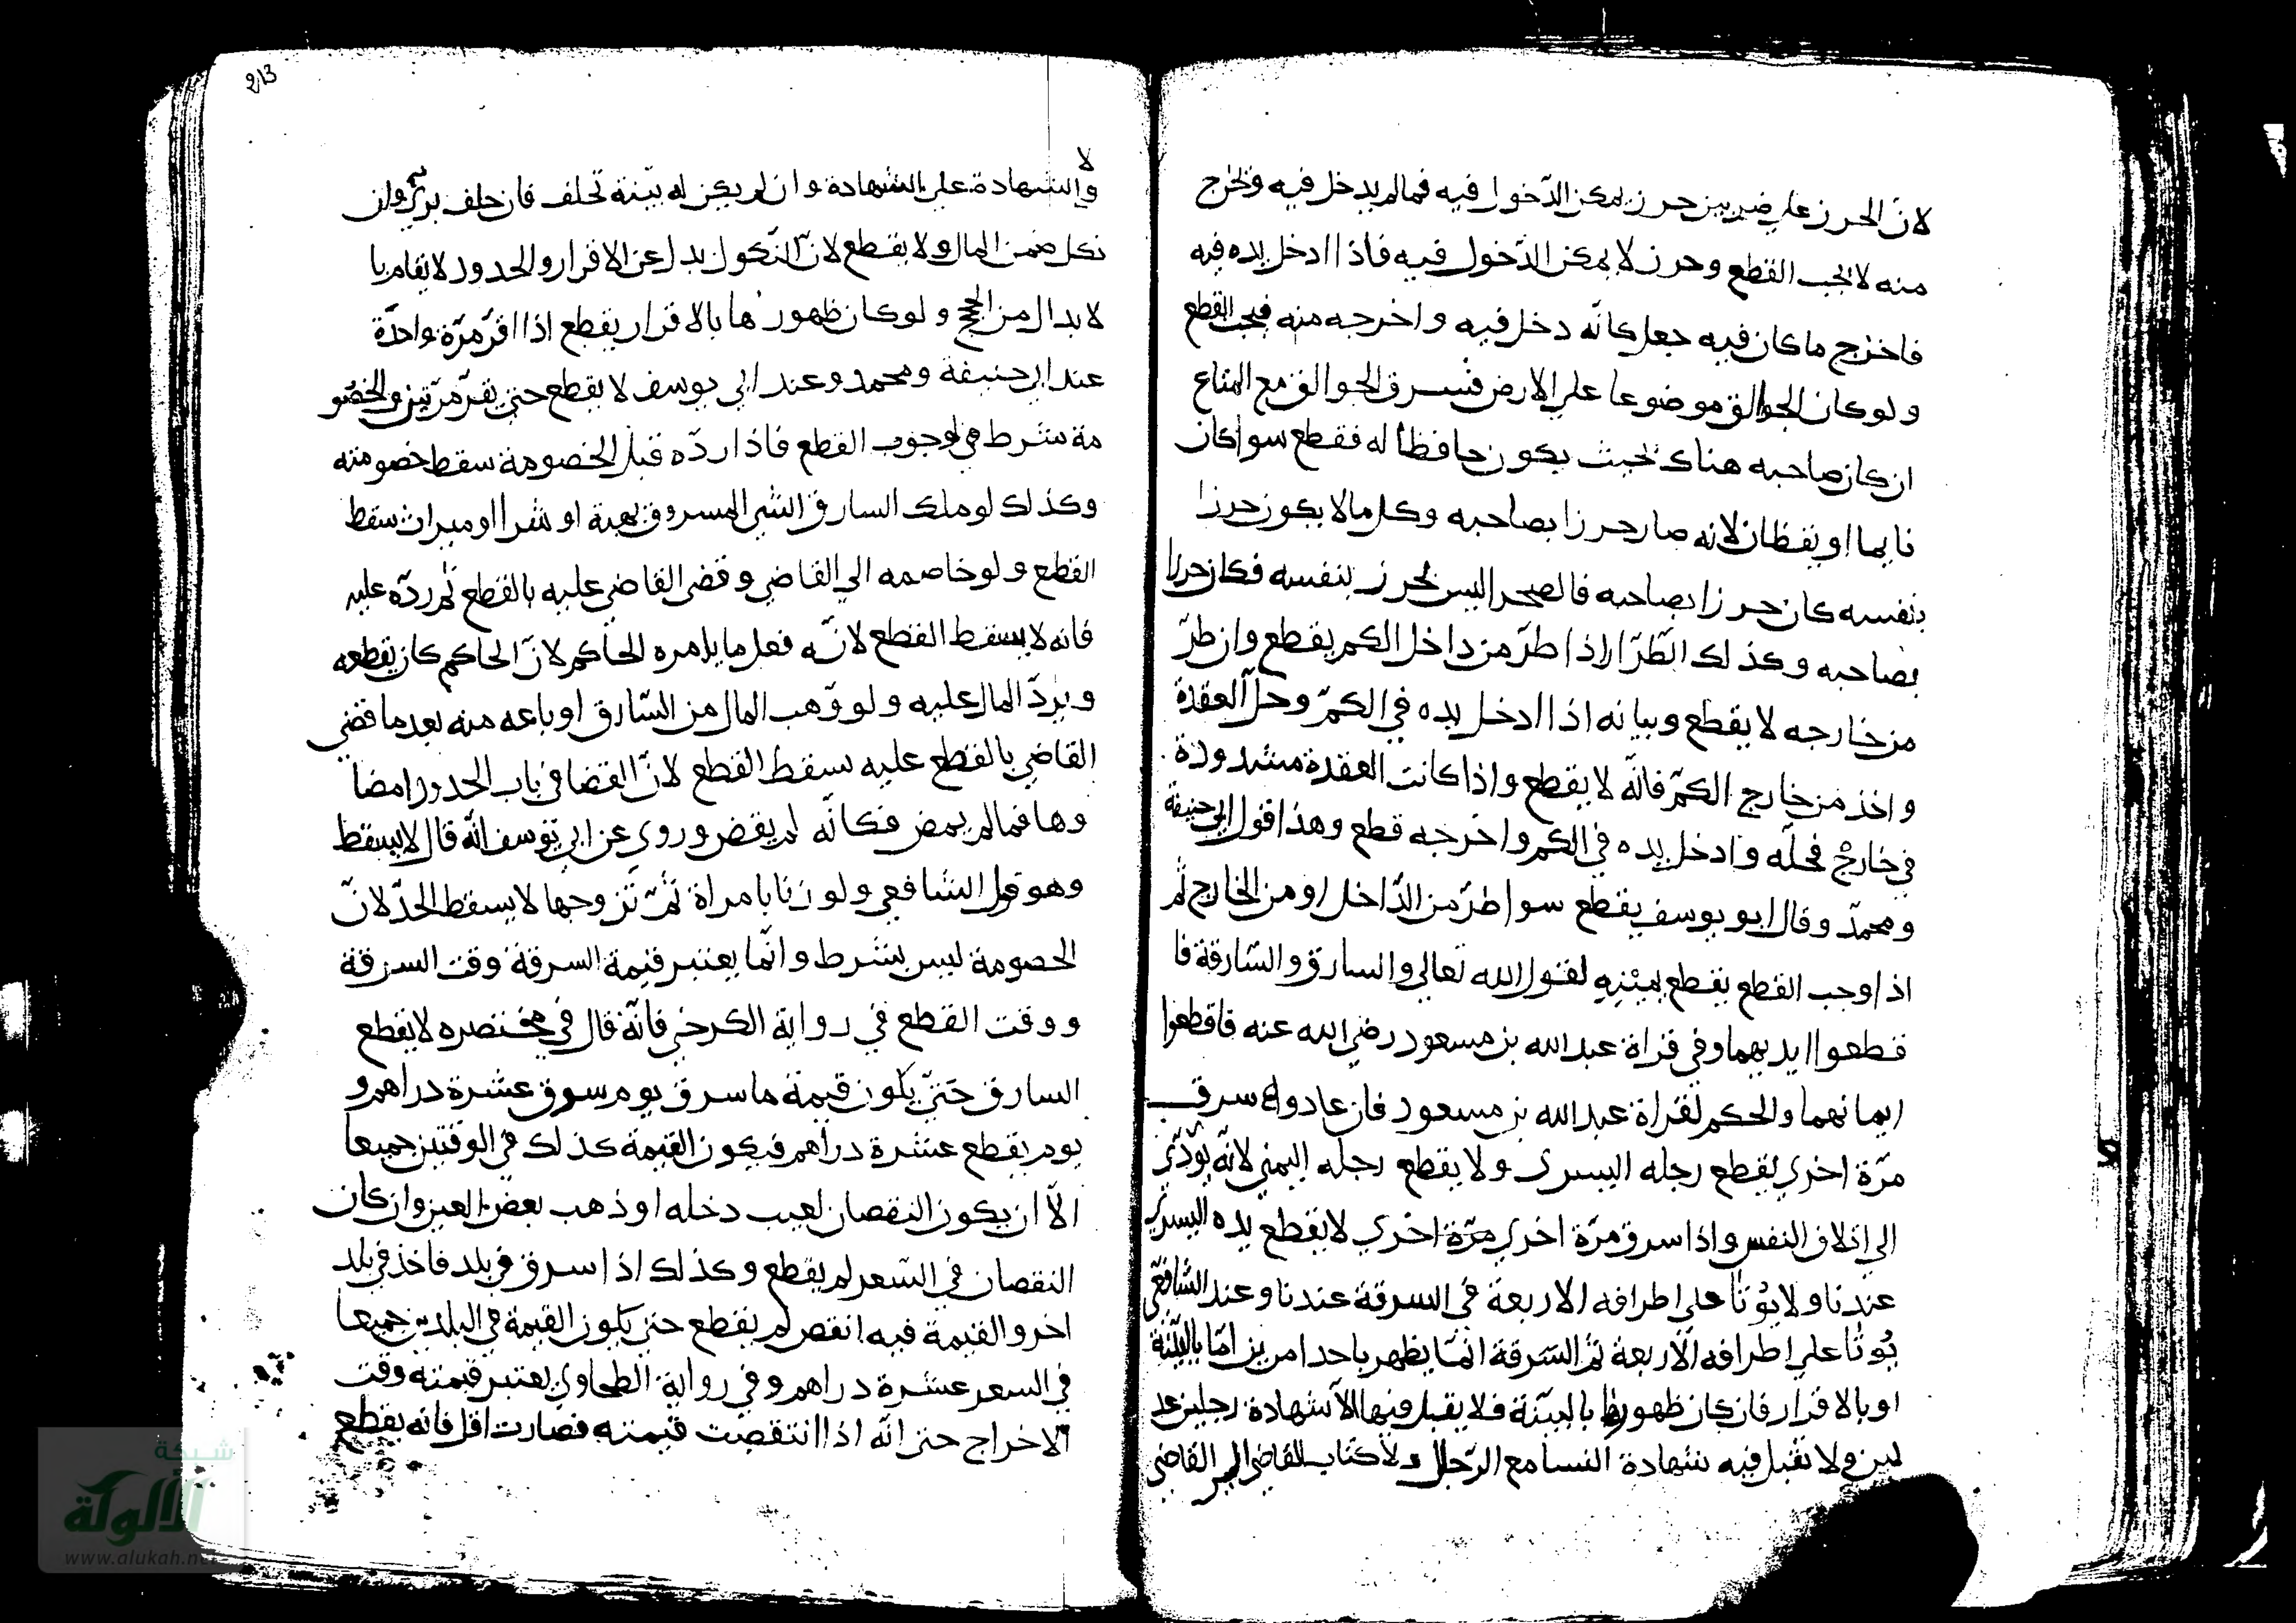 لان الحرز علي ضربين حرز يمكن الدّخول فيه فمالم يدخل فيه ويخرج
منه لا يجب القطع وحرز لا يمكن الدّخول فيه فاذا ادخل يده فيه
فاخرج ماكان فيه جعل كانّه دخل فيه واخرجه منه فيجب القطع
ولو كان الجوالق موضوعا علي الارض فسرق الجوالق مع المتاع
ان كان صاحبه هناك بحيث يكون حافظا له فقطع سواكان
نايما او يقظان لانه صار حرزا بصاحبه وكل مالا يكون حرزا
بنفسه كان حرزا بصاحبه فالصحرا ليس بحرز بنفسه فكان حرزا
بصاحبه وكذلك الطّرّار اذا طرّ من داخل الكم يقطع وان طرّ
من خارجه لا يقطع وبيانه اذا ادخل يده في الكمّ وحلّ العقدة
واخذ من خارج الكمّ فانّه لا يقطع واذا كانت العقدة مشدودة
في خارج فحلّه وادخل يده في الكم واخرجه قطع وهذا قول ابي حنيفة
ومحمدّ وقال ابو يوسف يقطع سوا طرّ من الدّاخل او من الخارج ثم
اذا وجب القطع يقطع يمينه لقول الله تعالي والسارق والسّارقة فا
قطعوا ايديهما وفي قراة عبد الله بن مسعود رضي الله عنه فاقطعوا
ايمانهما والحكم لقراة عبد الله بن مسعود فان عاد سرق
مرّة اخري يقطع رجله اليسري ولا يقطع رجله اليمني لانّه يؤدّي
الي اتلاف النفس واذا سرق مرّة اخري مرّة اخري لا يقطع يده اليسري
عندنا ولا يؤتا علي اطرافه الاربعة في السرقة عندنا وعند الشّافعي
يُوتا علي اطرافه الاربعة ثم السّرقة انّما يظهر باحد امرين امّا بالبيّنة
او بالاقرار فان كان ظهورها بالبيّنة فلا يقبل فيها الاّ شهادة رجلين عد
لين ولا تقبل فيه شهادة النسا مع الرّجال ولا كتاب القاضي الي القاضي
213
ولا الشهادة علي الشهادة وان لم يكن له بيّنة تحلف فان حلف بريّ وان
نكل ضمن المال ولا يقطع لانّ النّكول بدل عن الاقرار والحدود لا يقام با
لا بدال من الحجج ولو كان ظهورها بالاقرار يقطع اذا اقرّ مرّة واحدّة
عند ابي حنيفة ومحمد وعند ابي يوسف لا يقطع حتي يقرّ مرّتين والخصو
مة شرط في لوجوب القطع فاذا ردّه قبل الخصومة سقط خصومته
وكذلك لو ملك السارق الشي المسروق بهبة او شرا او ميراث سقط
القطع ولو خاصمه الي القاضي وقضي القاضي عليه بالقطع ثم ردّه عليه
فانه لا يسقط القطع لانّه فعل ما يامره الحاكم لانّ الحاكم كان يقطعه
ويردّ المال عليه ولو وّهب المال من السّارق او باعه منه بعد ما قضي
القاضي بالقطع عليه سقط القطع لانّ القضا في باب الحدود امضا
وها فمالم يمض فكانّه لم يقض وروي عن ابي يوسف انّه قال لا يسقط
وهو قول الشافعي ولو زنا بامراة ثمّ تزوجها لا يسقط الحدّ لانّ
الخصومة ليس بشرط وانّما يعتبر قيمة السرقة وقت السرقة
ووقت القطع في رواية الكرخي فانّه قال في مختصره لا يقطع
السارق حتيّ يكون قيمة ما سرق يوم سرق عشرة دراهم و
يوم يقطع عشرة دراهم فيكون القيمة كذلك في الوقتين جميعا
الاّ ان يكون النقصان لعيب دخله او ذهب بعض العين وان كان
النقصان في السّعر لم يقطع وكذلك اذا سرق في بلد فاخذ في بلد
اخر والقيمة فيه انقص لم يقطع حتي يكون القيمة في البلدين جميعا
في السعر عشرة دراهم وفي رواية الطحاوي يعتبر قيمته وقت
الاخراج حتي انّه اذا انتقصت قيمته فصارت اقل فانه يقطع
شبكة
الألوكة
www.alukah.net